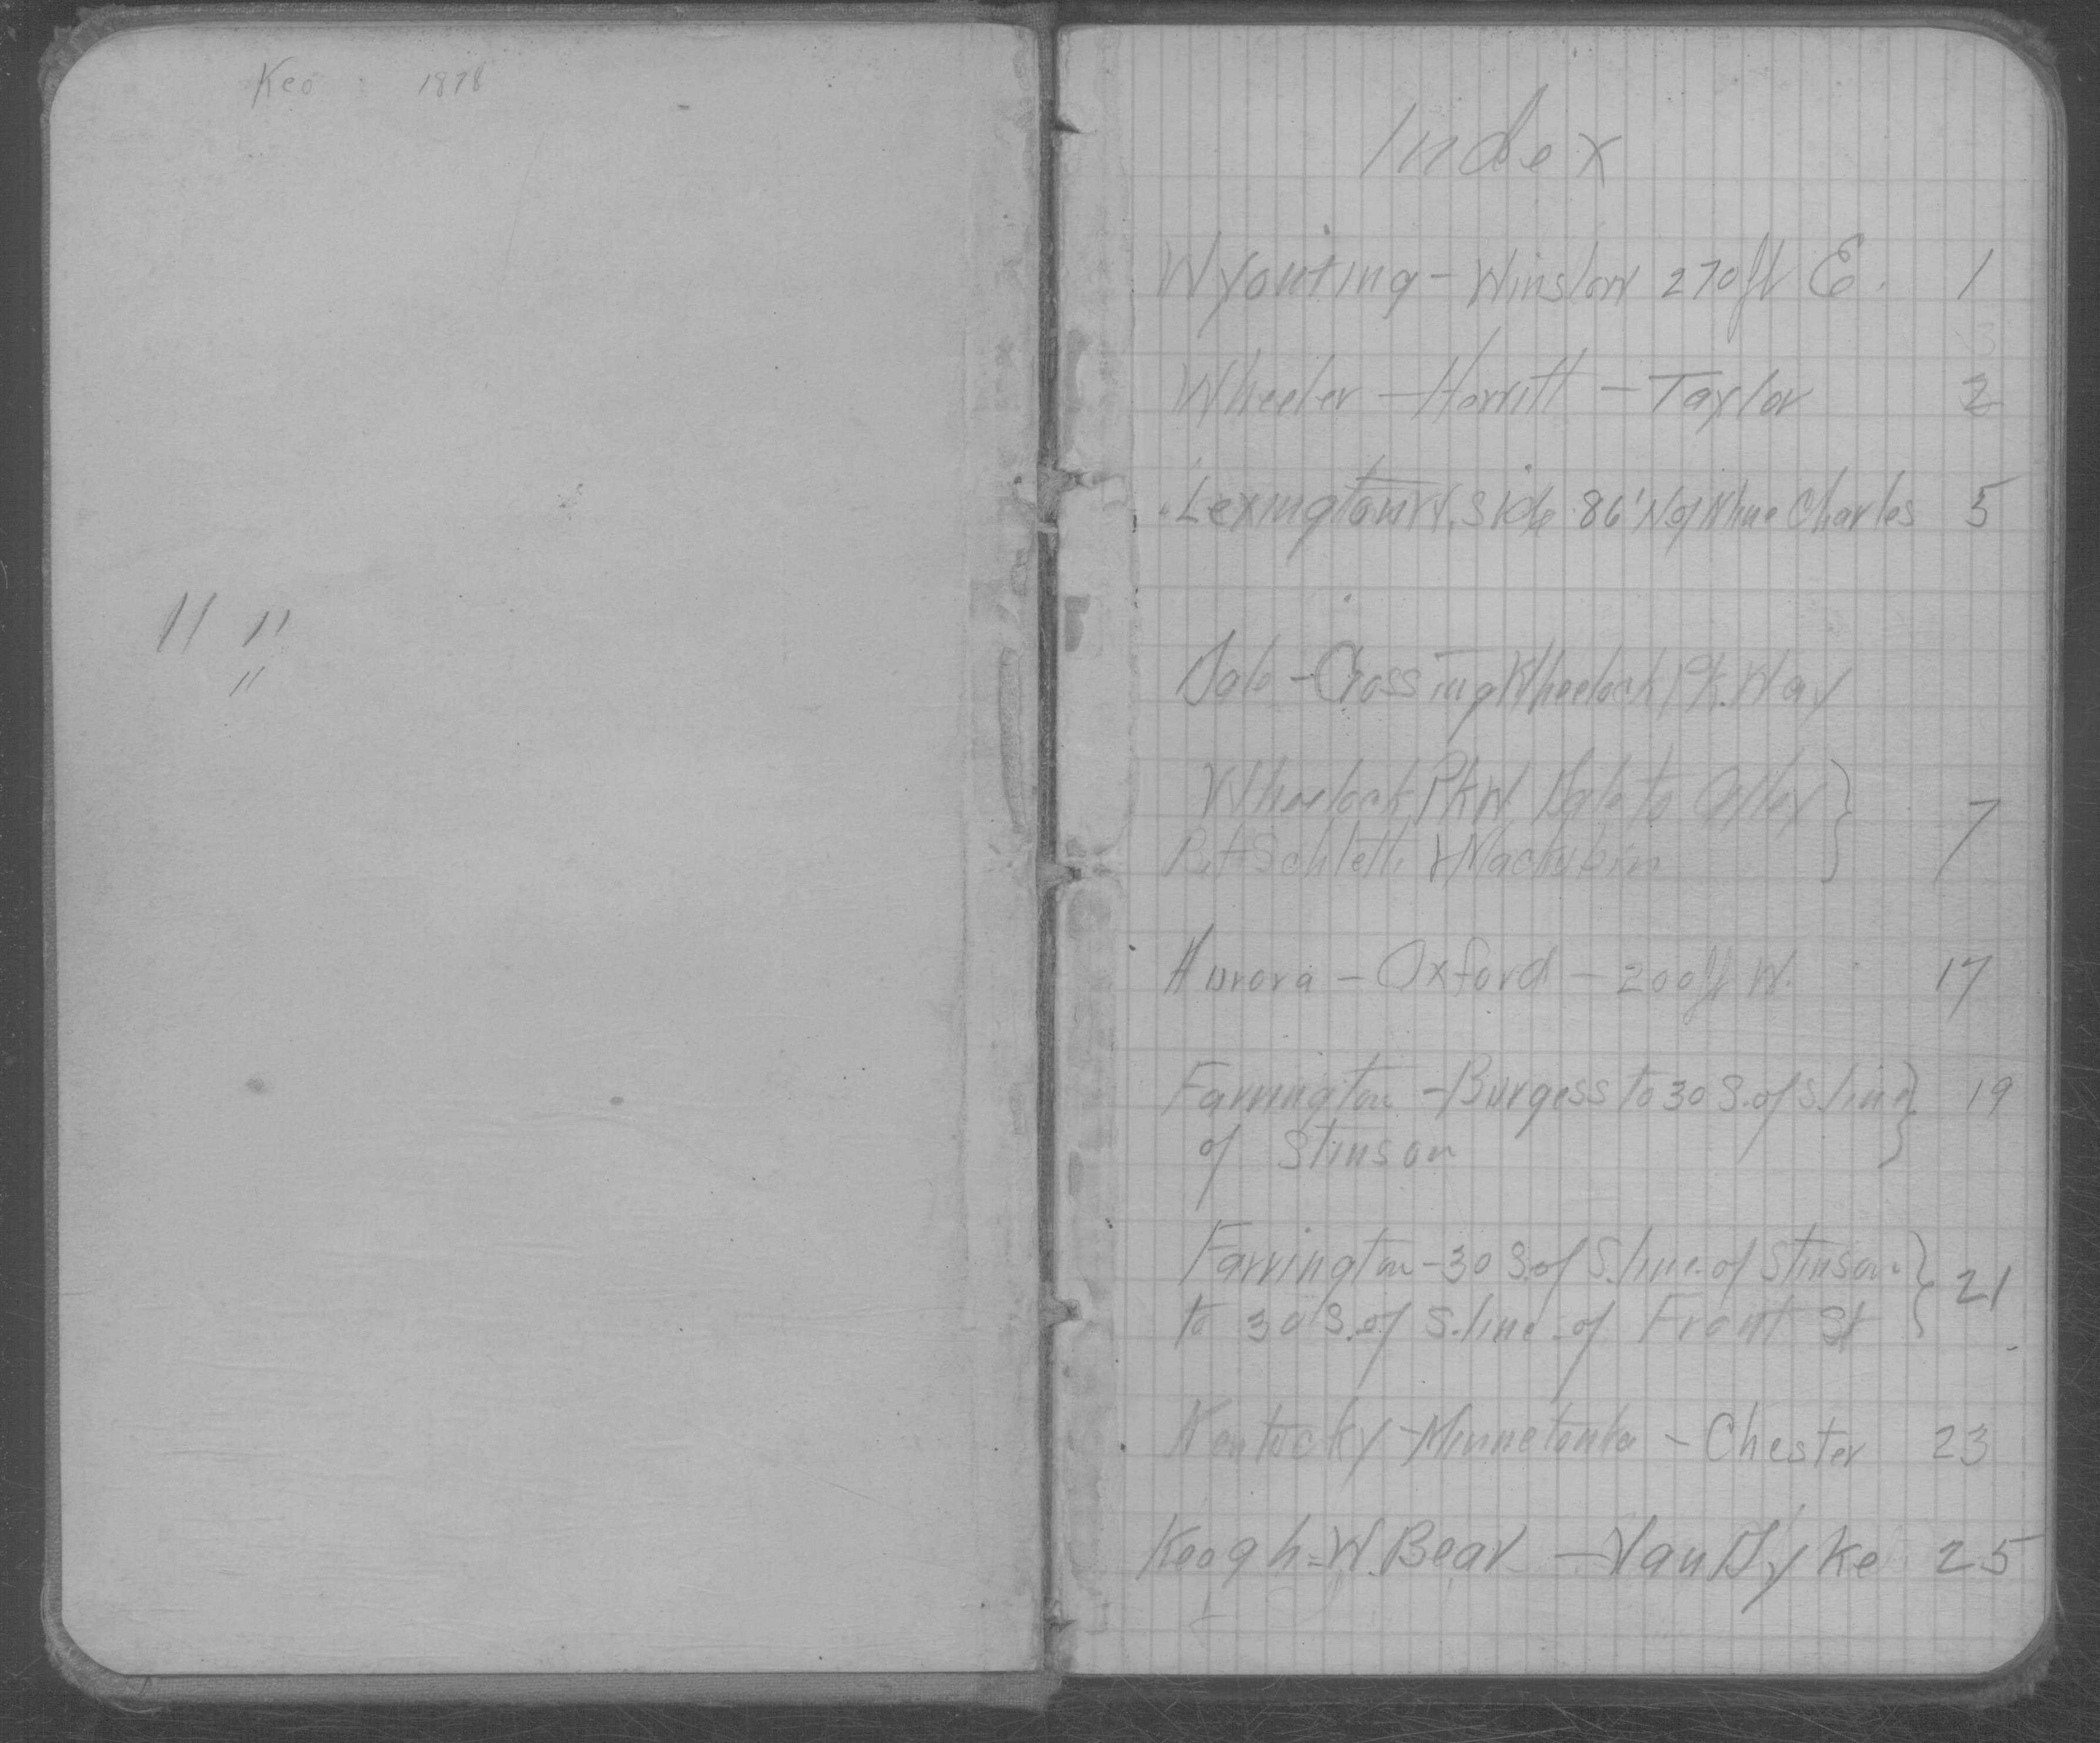 Keo 1878
11 11
11
Index
Wyoming - Winslow 270 ft E. 1
Wheeler - Hewitt - Taylor 2
Lexington W. side 86' N of Charles 5
Dale - Crossing Wheelock Pk. Way
Wheelock Pk W. Dale to Alley } 7
Bet Schletti & Mackubin
Aurora - Oxford - 200 ft W. 17
Farrington - Burgess to 30 S. of S. line } 19
of Stinson
Farrington - 30 S. of S. line of Stinson } 21
to 30 S. of S. line of Front St
Kentucky - Minnetonka - Chester 23
Keogh - W. Bear - Van Dyke 25